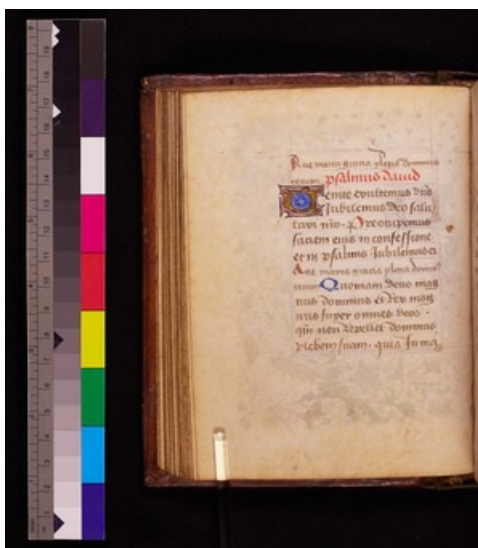 Aue maria gracia plena dominus
tecum. psalmus dauid
Venite exultemus dño
Jubilemus deo salu
tari nr̃o. Preocupemus
faciem eius in confessione
et in psalmis Jubilemus ei
Aue maria gracia plena domin⁹
tecum Quoniam deus mag
nus dominus et rex mag
nus super omnes deos.
qm̃ non repellet dominus
plebem suam. quia In ma